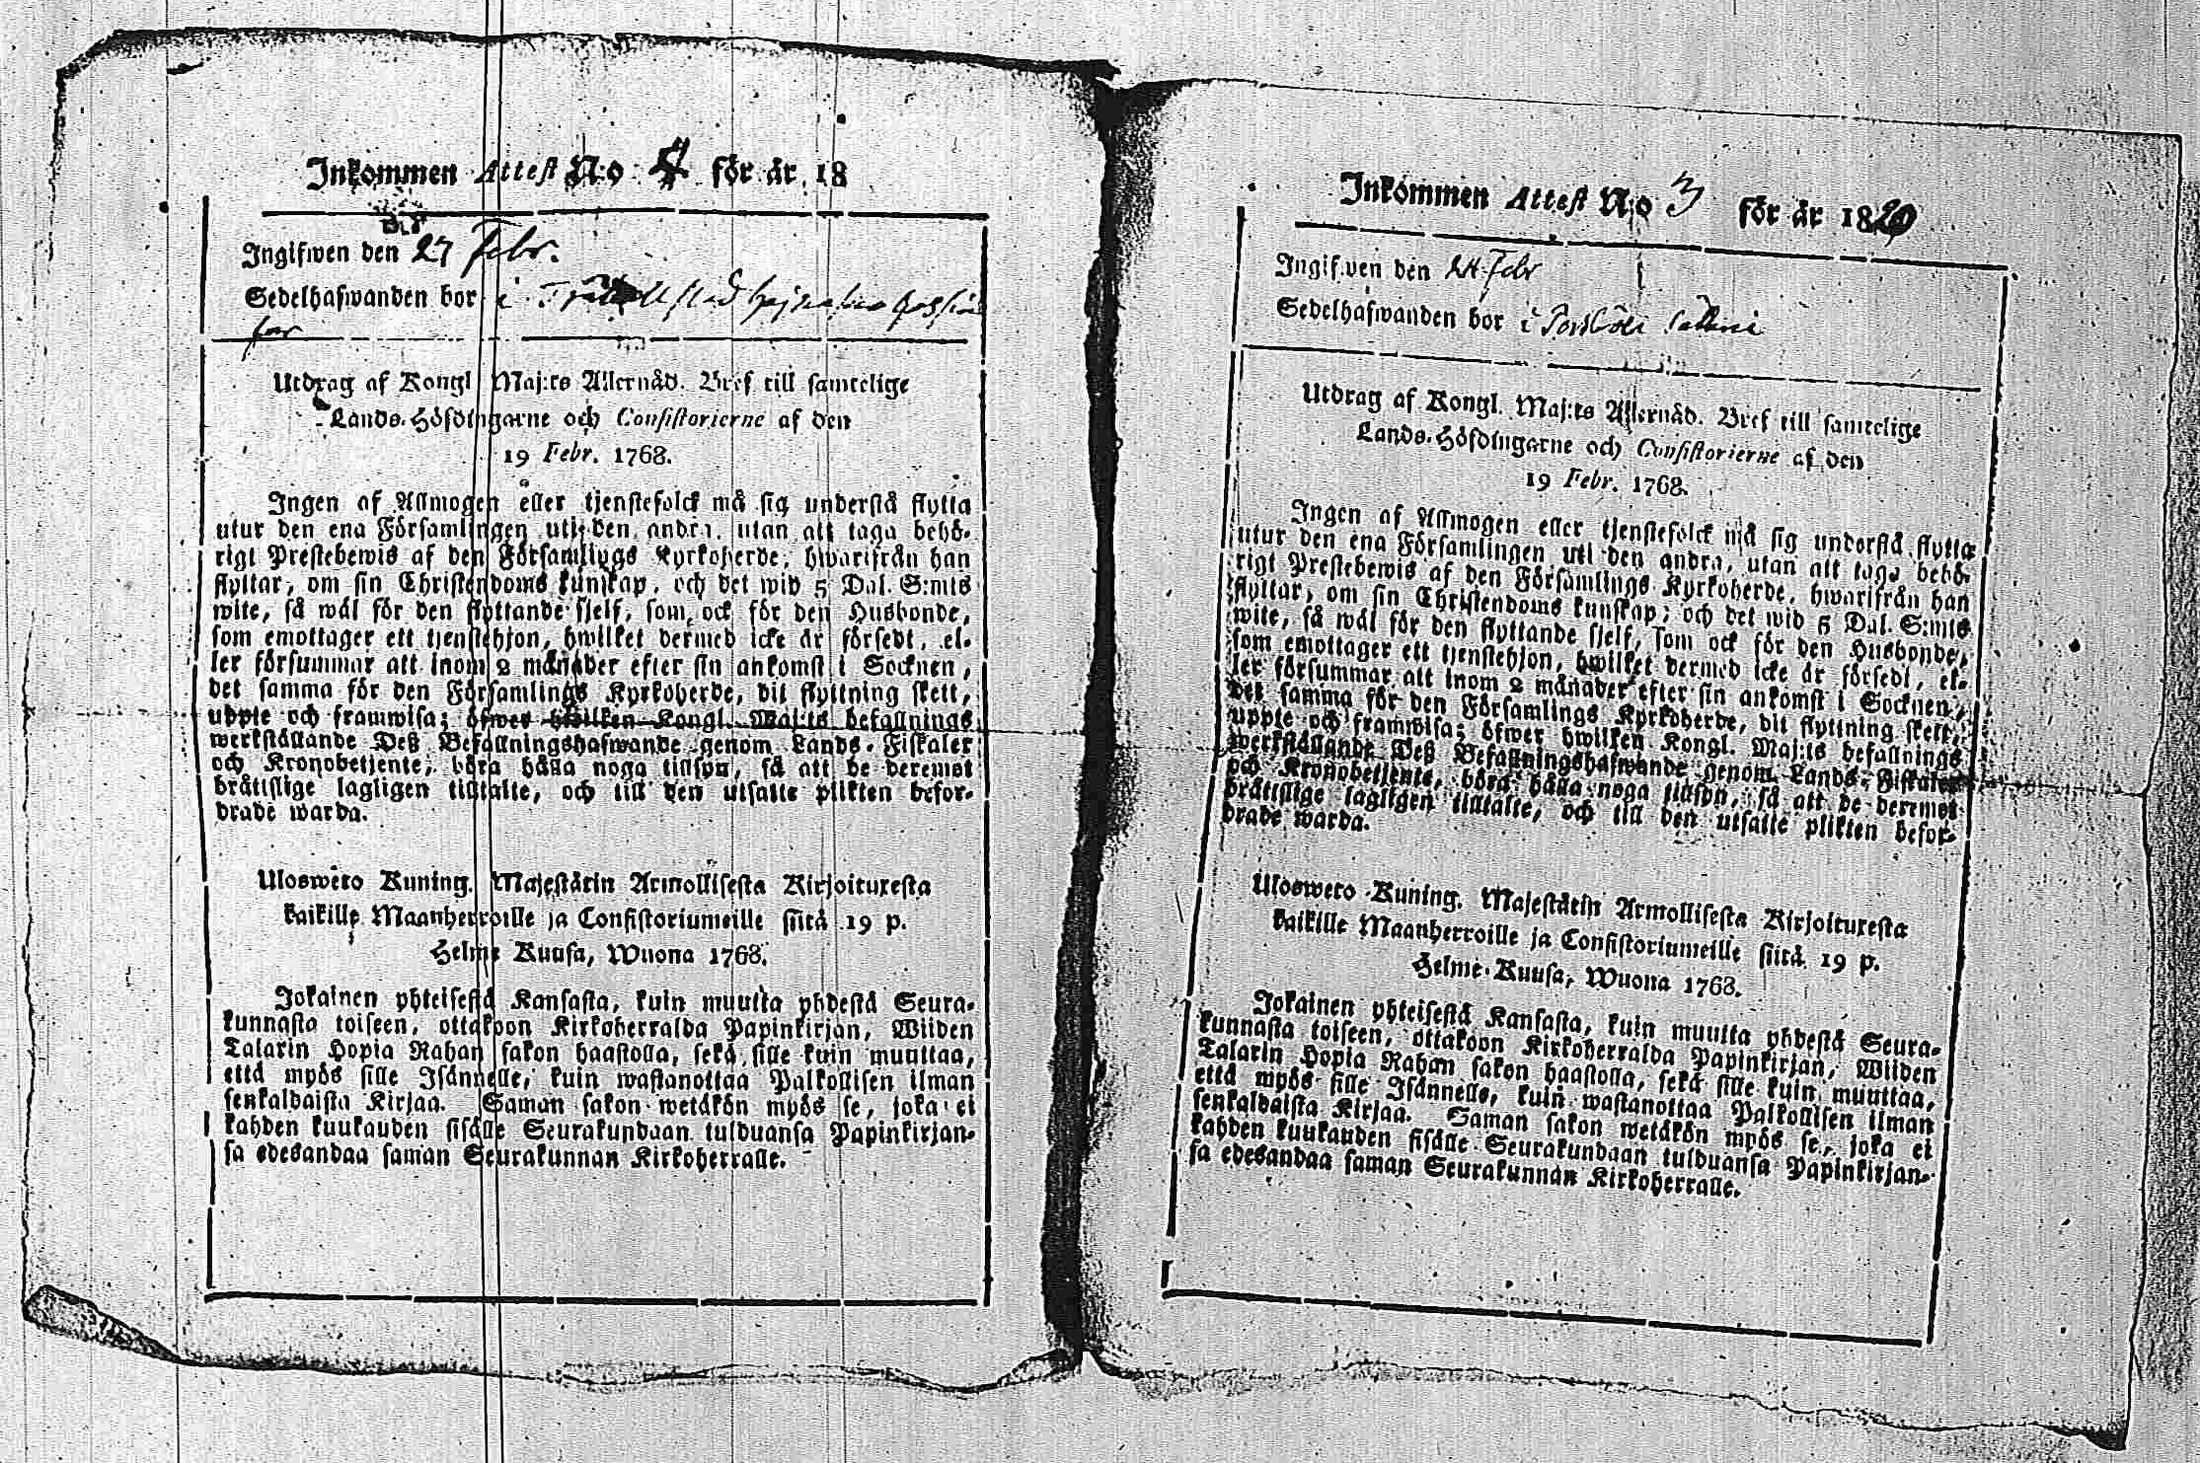 Inkommen Attest N:o 4 för år 18
Ingifwen den 27 Febr.
Sedelhafwanden bor i
Utdrag af Kongl Maj:ts Allernåd. Bref till samtelige
Lands-Höfdingarne och Consistorierne af den
19 Febr. 1768.
Ingen af Allmogen eller tjenstefolck må sig understå flytta
utur den ena Församlingen uti den andra, utan att taga behö-
rigt Prestebewis af den Församlings Kyrkoherde, hwarifrån han
flyttar, om sin Christendoms kunskap, och det wid 5 Dal. S:mts
wite, så wäl för den flyttande sjelf, som ock för den Husbonde,
som emottager ett tjenstehjon, hwilket dermed icke är försedt, el-
ler försummar att inom 2 månader efter sin ankomst i Socknen,
det samma för den Församlings Kyrkoherde, dit flyttning skett,
uppte och framwisa; öfwer hwilken Kongl. Maj:ts befallnings
werkställande Deß Befallningshafwande genom Lands-Fiskaler
och Kronobetjente, böra hålla noga tillsyn, så att de deremot
bråttslige lagligen tilltalte, och till den utsatte plikten befor-
drade warda.
Uloswéto Kuning. Majestätin Armollisesta Kirjoituxesta
kaikille Maanherroille ja Consistoriumeille siitä 19 p.
Helme Kuusa, Wuona 1768.
Jokainen yhteisestä Kansasta, kuin muutta yhdestä Seura-
kunnasta toiseen, ottakoon Kirkoherralda Papinkirjan, Wiiden
Talarin Hopia Rahan sakon haastolla, sekä sille kuin muuttaa,
että myös sille Isännelle, kuin wastanottaa Palkollisen ilman
senkaldaista Kirjaa. Saman sakon wetäkön myös se, joka ei
kahden kuukauden sisälle Seurakundaan tulduansa Papinkirjan-
sa edesandaa saman Seurakunnan Kirkoherralle.
Inkommen Attest N:o 3 för år 1820
Ingifwen den 24 Febr
Sedelhafwanden bor i
Utdrag af Kongl. Maj:ts Allernåd. Bref till samtelige
Lands-Höfdingarne och Consistorierne af den
19 Febr. 1768.
Ingen af Allmogen eller tjenstefolck må sig understå flytta
utur den ena Församlingen uti den andra, utan att taga behö-
rigt Prestebewis af den Församlings Kyrkoherde, hwarifrån han
flyttar, om sin Christendoms kunskap; och det wid 5 Dal. S:mts
wite, så wäl för den flyttande sjelf, som ock för den Husbonde,
som emottager ett tjenstehjon, hwilket dermed icke är försedt, el-
ler försummar att inom 2 månader efter sin ankomst i Socknen,
det samma för den Församlings Kyrkoherde, dit flyttning skett,
uppte och framwisa; öfwer hwilken Kongl. Maj:ts befallnings
werkställande Deß Befallningshafwande genom Lands-Fiskaler
och Kronobetjente, böra hålla noga tillsyn, så att de deremot
bråttslige lagligen tilltalte, och till den utsatte plikten befor-
drade warda.
Uloswéto Kuning. Majestätin Armollisesta Kirjoituxesta
kaikille Maanherroille ja Consistoriumeille siitä 19 p.
Helme-Kuusa, Wuona 1768.
Jokainen yhteisestä Kansasta, kuin muutta yhdestä Seura-
kunnasta toiseen, ottakoon Kirkoherralda Papinkirjan, Wiiden
Talarin Hopia Rahan sakon haastolla, sekä sille kuin muuttaa,
että myös sille Isännelle, kuin wastanottaa Palkollisen ilman
senkaldaista Kirjaa. Saman sakon wetäkön myös se, joka ei
kahden kuukauden sisälle Seurakundaan tulduansa Papinkirjan-
sa edesandaa saman Seurakunnan Kirkoherralle.